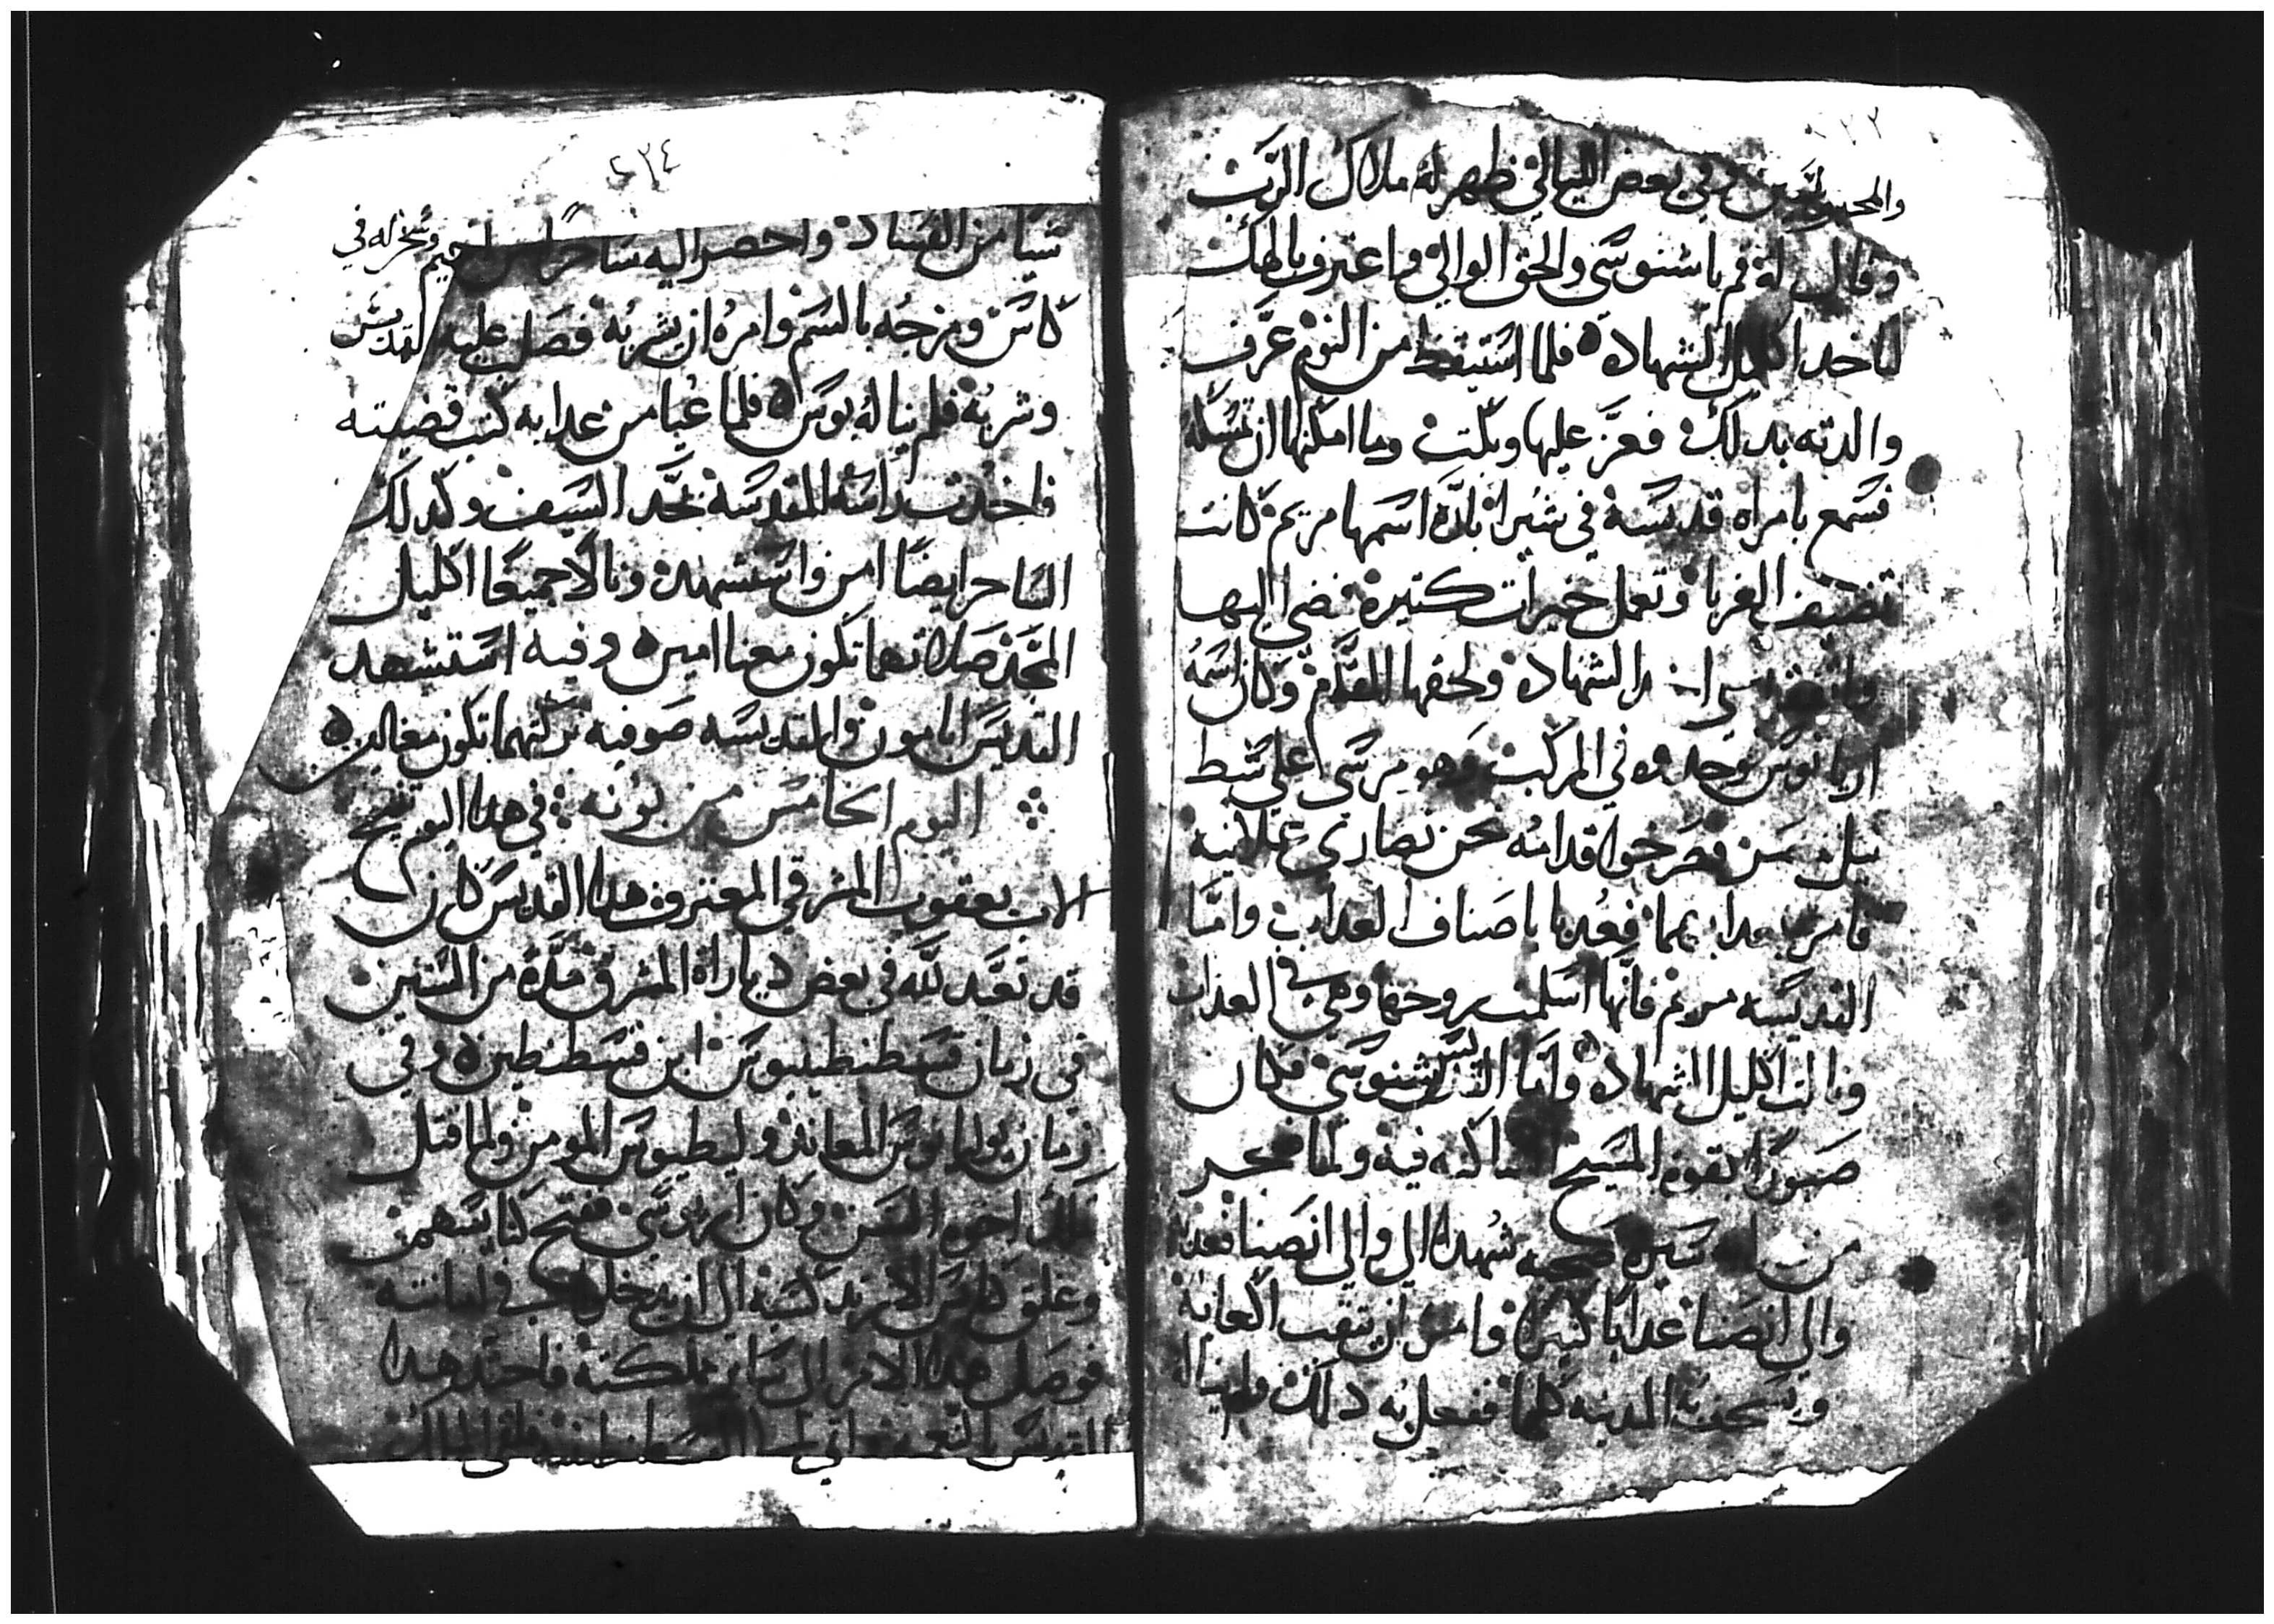 ٢٣٣
والمحبوسين في بعض الليالي ظهر له ملاك الرب
وقال له قم ياشنوسي والحق الوالي واعترف بالهك
لتاخد اكليل الشهاده فلما استيقظ من النوم عرف
والدته بدلك فعز عليها وبكت وما امكنها ان تمسكه
فسمع بامراه قديسه في شبرا اسمها مريم كانت
تضيف الغربا وتعمل خيرات كتيره فمضي اليها
الشهاده ولحقها المقدم وكان اسمه
اريانوس فوجدوه في المركب وهو مرسي علي شط
فصرخوا قدامه نحن نصاري علانيه
فامر بعدابهما فعدبا باصناف العداب واما
القديسه مريم فانها اسلمت روحها وهي في العداب
ونالت اكليل الشهاده واما القديس شنوسي فكان
صبورا بقوه المسيح الساكنه فيه ولما ضجر
من سيره صحبه شهدا الي والي انصنا فعدبه
والي انصنا عدابا كتيرا وامر ان يثقب اكعابه
ويسحب المدينه كلها ففعل به دلك ولم يناله
٢٣٤
شيا من الفساد واحضر اليه ساحرا من اخميم وسخر له في
كاس ومزجه بالسم وامره ان يشربه فصلب عليه القديس
وشربه فلم يناله بوس فلما عيا من عدابه كتب قضيته
فاخدت راسه المقدسه بحد السيف وكدلك
الساحر ايضا امن واستشهد ونالا جميعا اكليل
المجد صلاتهما تكون معنا امين وفيه استشهد
القديس ابامون والقديسه صوفيه بركتهما تكون معنا امين
اليوم الخامس من بونه في هدا اليوم تنيح
الاب يعقوب المشرقي المعترف هدا القديس كان
قد تعبد لله في بعض دياراة المشرق مدة من السنين
في زمان قسطنطينوس ابن قسطنطين وفي
زمان يوليانوس المعاند وليطيوس المومن ولما قتل
ملك اخوه السن وكان اريوسي ففتح كنايسهم
وغلق كنايس الارتدكسيه الي ان يدخلوا في امانته
فوصل هدا الامر الي ساير مملكته فاخد هدا